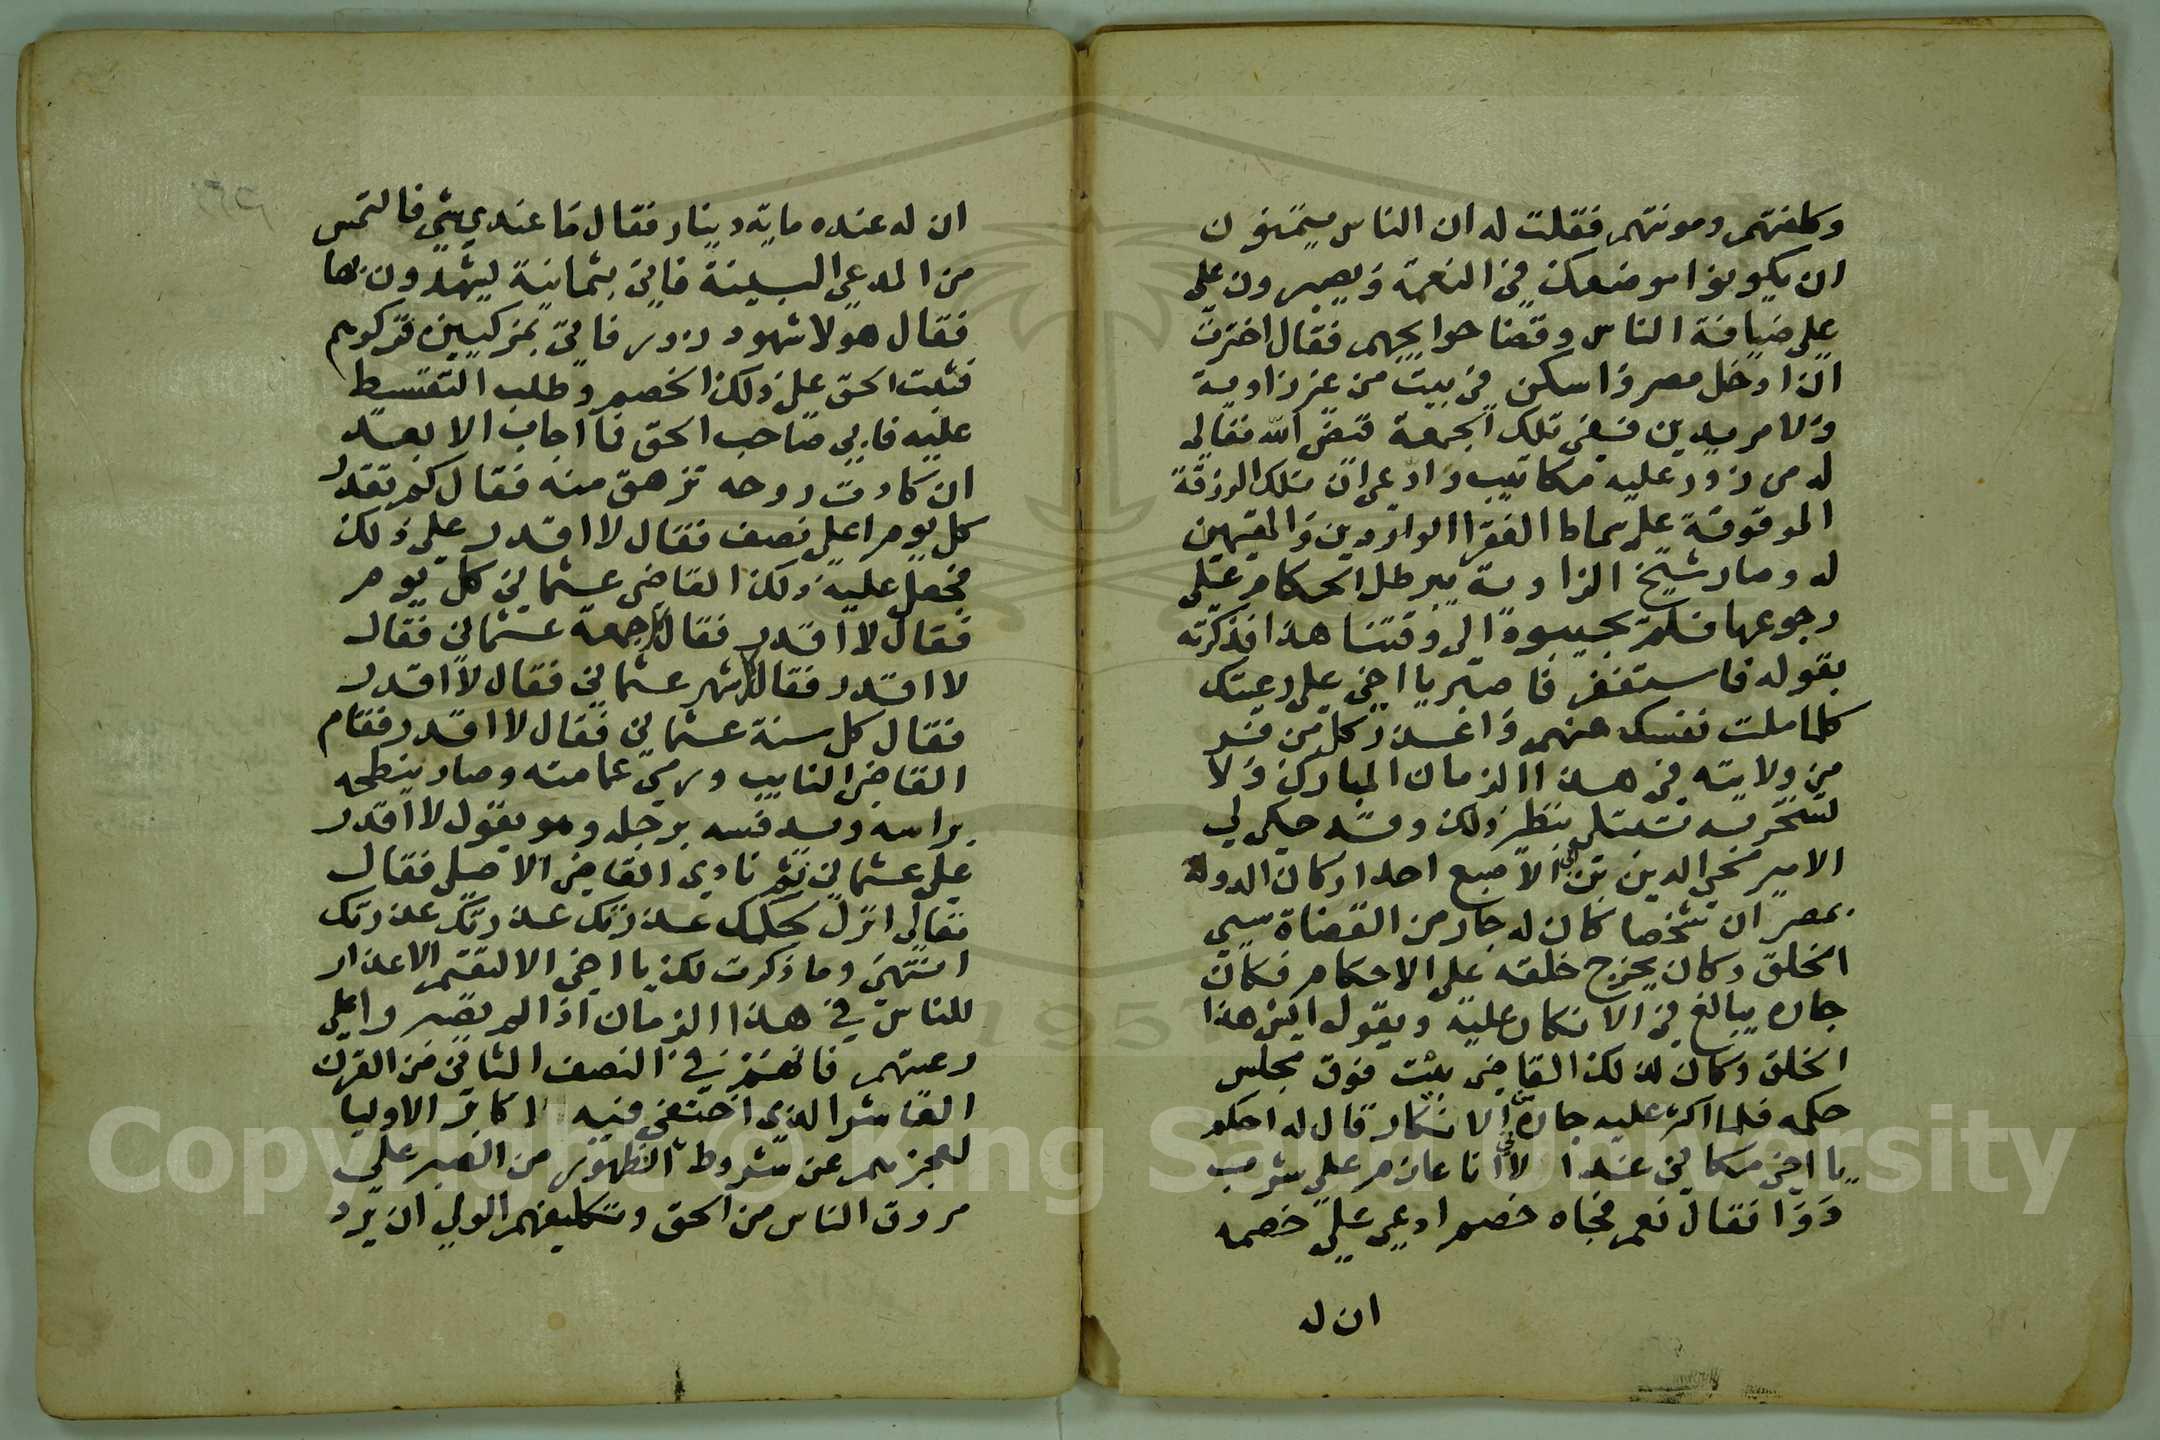 وكلفتهم ومونتهم فقلت له ان الناس يتمنون
ان يكونوا موضعك في النعمة ويصبرون على
على ضيافة الناس وقضا حوايجهم فقال اخترت
ان ادخل مصر واسكن في بيت من غير زاوية
ولا مريدين ففي تلك الجمعة قيض الله تعالى
له من زور عليه مكاتيب وادعى ان تلك الرزقة
الموقوفة على سماط الفقرا الواردين والمقيمين
له وصار شيخ الزاوية يبرطل الحكام على
رجوعها فلم يجيبوه الى وقتنا هذا فذكرته
بقوله فاستغفر فاصبر يا اخي على رعيتك
كلما ملت نفسك منهم واعذر كل من فر
من ولايته في هذا الزمان المبارك ولا
تسخر به تبتلى بنظير ذلك وقد حكى لي
الامير محيي الدين بن ابي الاصبع احد اركان الدولة
بمصر ان شخصا كان له جار من القضاة سيي
الخلق وكان يخرج خلقه على الاحكام فكان
جاره يبالغ في الانكار عليه ويقول ايش هذا
الخلق وكان لذلك القاضي بيت فوق مجلس
حكمه فلما اكثر عليه جاره الانكار قال له احكم
يا اخي مكاني غدا لاني انا عازم على شرب
دوا فقال نعم فجاه خصم ادعى على خصمه
ان له
ان له عنده ماية دينار فقال ما عندي شي فالتمس
من المدعي البينة فاتى بثمانية ليشهدون بها
فقال هولا شهود زور فاتى بمزكيين فزكوهم
فثبت الحق على ذلك الخصم وطلب التقسيط
عليه فابى صاحب الحق فما اجاب الا بعد
ان كادت روحه تزهق منه فقال كم تقدر
كل يوم اعلى نصف فقال لا اقدر على ذلك
فجعل عليه ذلك القاضي عثماني كل يوم
فقال لا اقدر فقال كل جمعة عثماني فقال
لا اقدر فقال كل شهر عثماني فقال لا اقدر
فقال كل سنة عثماني فقال لا اقدر فقام
القاضي النايب ورمي عمامته وصار ينطحه
براسه ويدفسه برجله وهو يقول لا اقدر
على عثماني ثم نادى القاضي الاصلي فقال
تعالى انزل لحكمك عذرتك عذرتك عذرتك
انتهى وما ذكرت لك يا اخي الا لتقيم الاعذار
للناس في هذا الزمان اذا لم يصبروا على
رعيتهم فانهم في النصف الثاني من القرن
العاشر الذي اختفى فيه الاكابر الاوليا
لعجزهم عن شروط الظهور من الصبر على
مروق الناس من الحق وتكليفهم الولي ان يرد